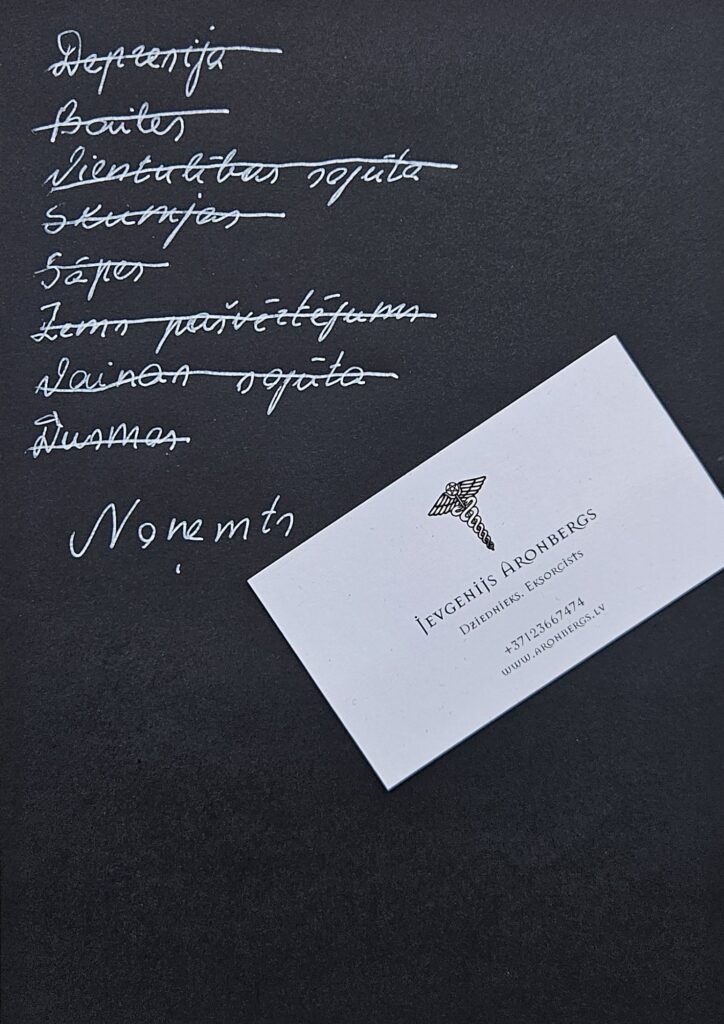 Depresija
Bailes
Vientulības sajūta
Skumjas
Sāpes
Zems pašvērtējums
Vainas sajūta
Dusmas
Noņemts
Jevgenijs Aronbergs
Dziednieks. Eksorcists
+37123667474
www.aronbergs.lv